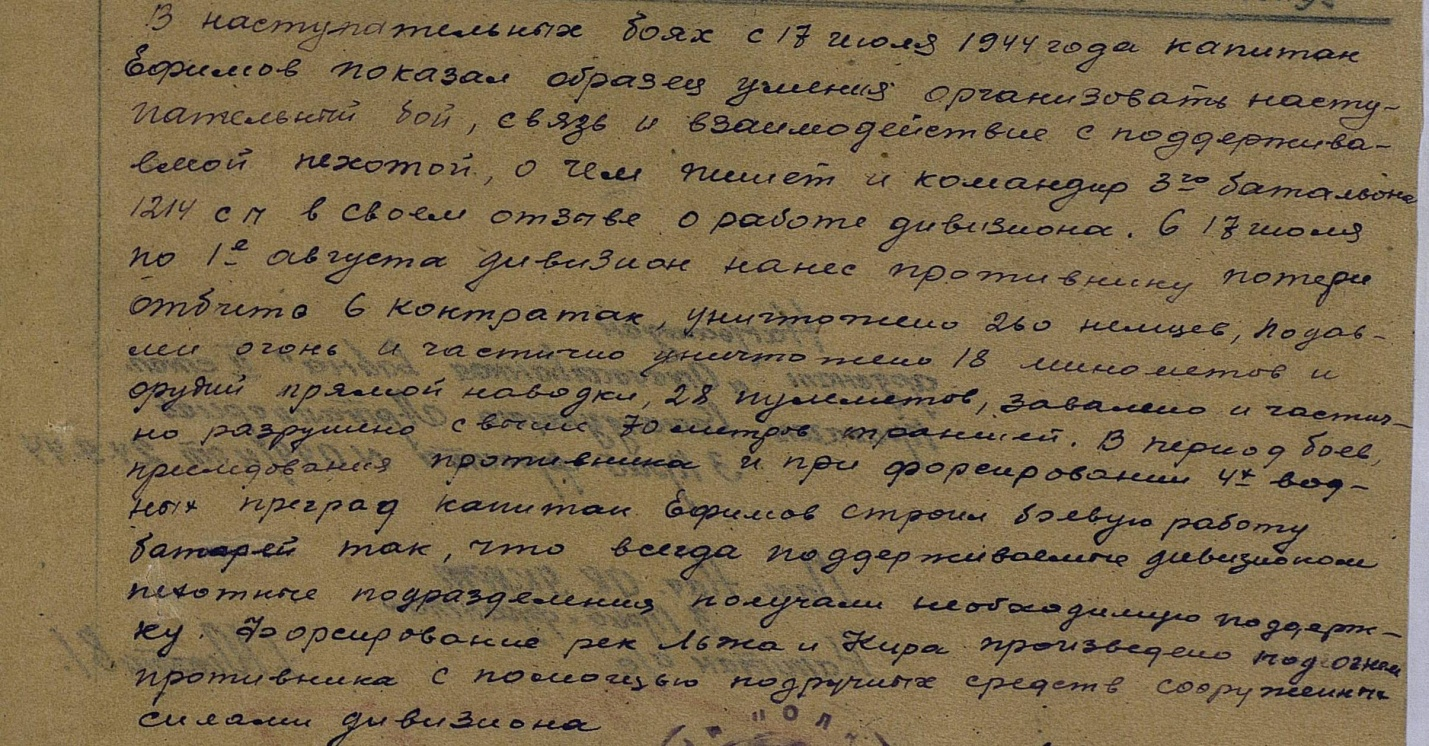 В наступательных боях с 17 июля 1944 года капитан
Ефимов показал образец уменья организовать насту-
пательный бой, связь и взаимодействие с поддержива-
емой пехотой, о чем пишет и командир 3го батальона
1214 сп в своем отзыве о работе дивизиона. С 17 июля
по 1е августа дивизион нанес противнику потери
отбито 6 контратак, уничтожено 260 немцев, подав-
лен огонь и частично уничтожено 18 минометов и
орудий прямой наводки, 28 пулеметов, завалено и частич-
но разрушено свыше 70 метров траншей. В период боев,
преследования противника и при форсировании 4х вод-
ных преград капитан Ефимов строил боевую работу
батарей так, что всегда поддерживаемые дивизионом
пехотные подразделения получали необходимую поддерж-
ку. Форсирование рек Льжа и Кира произведено под огнем
противника с помощью подручных средств сооруженных
силами дивизиона